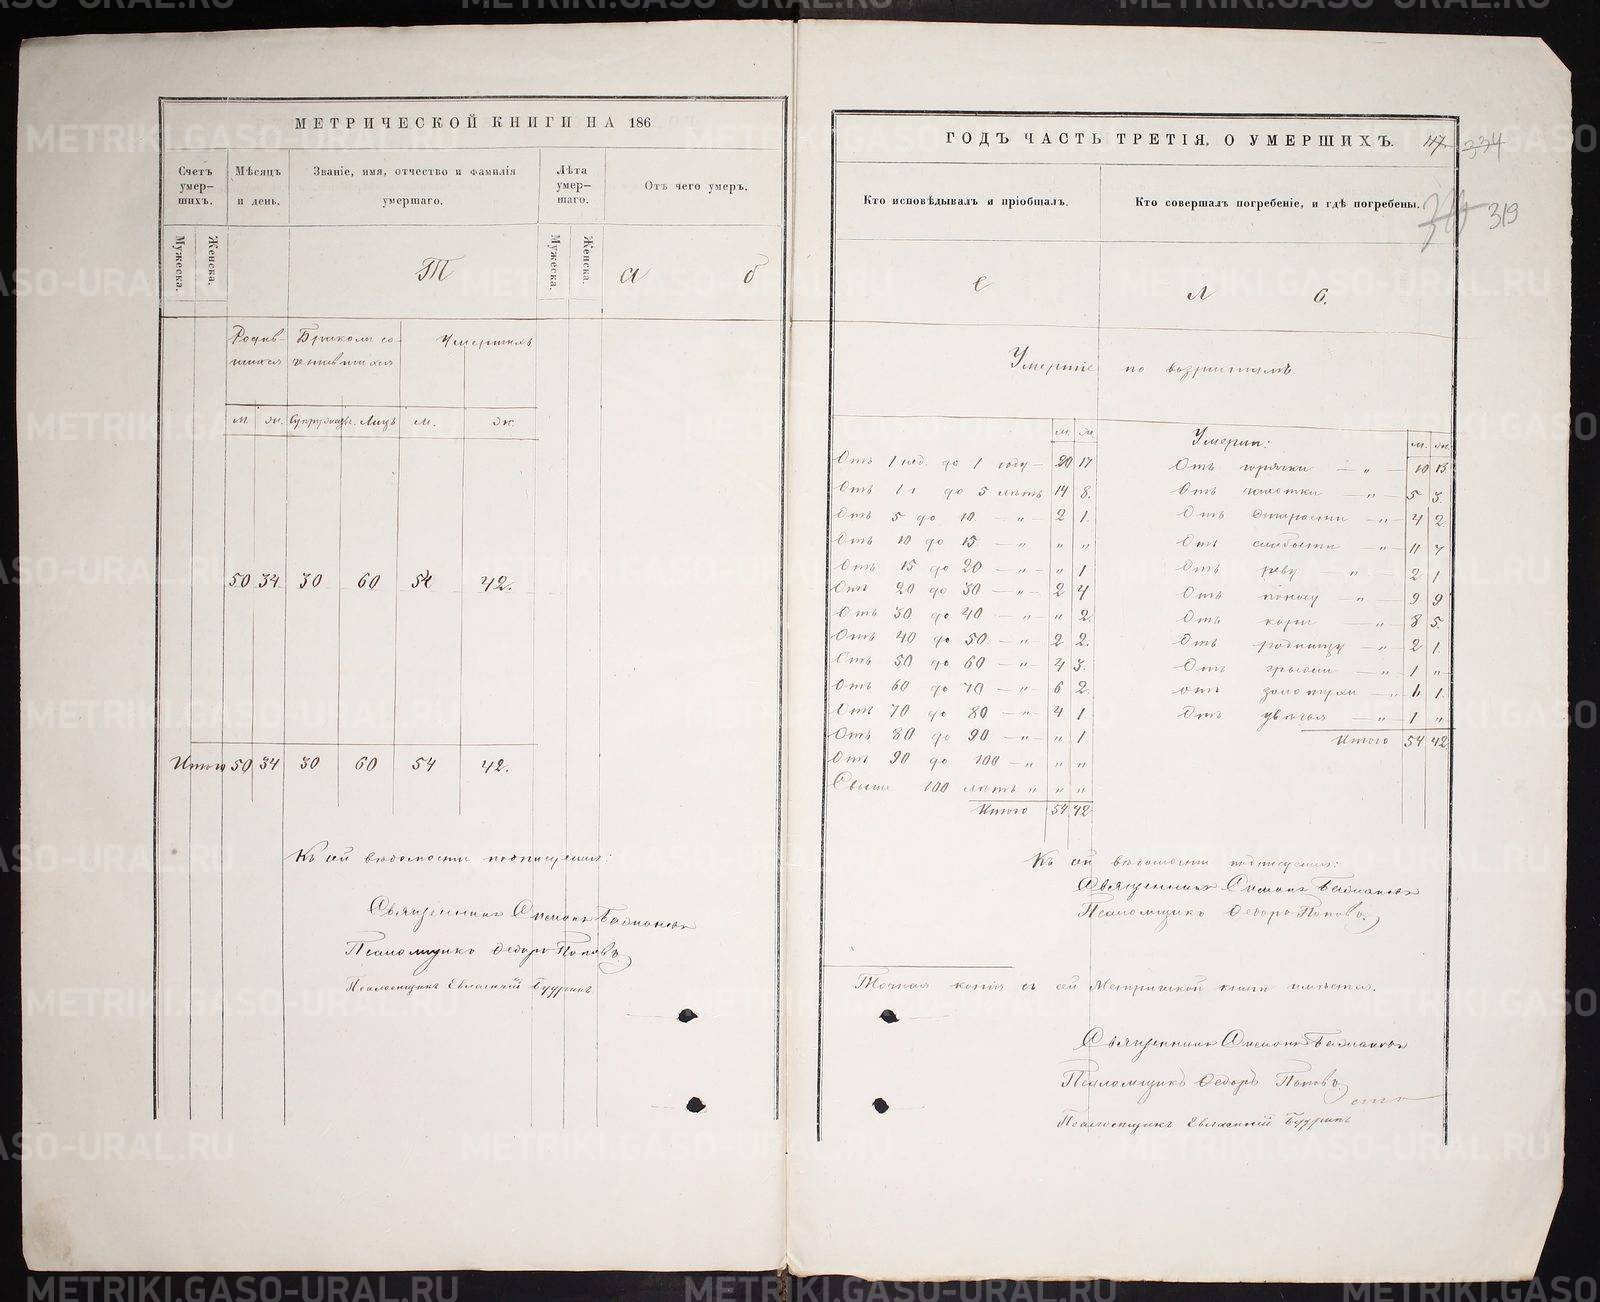 МЕТРИЧЕСКОЙ КНИГИ НА 186
Счетъ умер-шихъ.
Мѣсяцъ и день.
Званіе, имя, отчество и фамилія умершаго.
Лѣта умер-шаго.
Отъ чего умеръ.
Мужеска. Женска. Мужеска. Женска.
Т а б
Родив-шихся Бракомъ со-четавшихся Умершихъ
м. ж. Супружествъ. Лицъ м. ж.
50 34 30 60 54 42.
Итого 50 34 30 60 54 42.
Къ сей вѣдомости подписуемся:
Священникъ Симонъ
Псаломщикъ Ѳедоръ Поповъ
Псаломщикъ Евласній
ГОДЪ ЧАСТЬ ТРЕТІЯ, О УМЕРШИХЪ.
334
319
Кто исповѣдывалъ и пріобщалъ.
Кто совершалъ погребеніе, и гдѣ погребены.
е л б.
Умершіе по возрастамъ.
м. ж.
Отъ 1 нед. до 1 году — 20 17
Отъ 1 г до 5 лѣтъ 14 8.
Отъ 5 до 10 — „ — 2 1.
Отъ 10 до 15 — „ „ „
Отъ 15 до 20 — „ — „ 1
Отъ 20 до 30 — „ — 2 4
Отъ 30 до 40 — „ — „ 2.
Отъ 40 до 50 — „ — 2 2.
Отъ 50 до 60 — „ — 4 3.
Отъ 60 до 70 — „ — 6 2.
Отъ 70 до 80 — „ — 4 1
Отъ 80 до 90 — „ — „ 1
Отъ 90 до 100 — „ „ „
Свыше 100 лѣтъ „ „ „
Итого 54 42
Умерли: м. ж.
Отъ горячки — „ — 10 13
Отъ чахотки — „ — 5 3.
Отъ старости — „ — 4 2
Отъ слабости — „ — 11 7
Отъ реву — „ — 2 1
Отъ поносу — „ — 9 9
Отъ кори — „ — 8 5.
Отъ родимцу — „ — 2 1.
Отъ грыжи — „ — 1 „
Отъ золотухи — „ 1 1.
Отъ — „ — 1 „
Итого 54 42
Къ сей вѣдомости подписуемся:
Священникъ Симонъ
Псаломщикъ Ѳедоръ Поповъ.
Точная копія съ сей Метрической книги имѣется.
Священникъ Симонъ
Псаломщикъ Ѳедоръ Поповъ
Псаломщикъ Евласній
METRIKI.GASO-URAL.RU